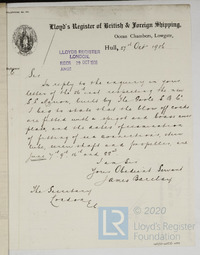 Lloyd's Register of British & Foreign Shipping,
Ocean Chambers, Lowgate,
Hull, 17th Octr 1916
LLOYDS REGISTER
LONDON.
RECD 18 OCT 1916
ANSD
Sir
In reply to the enquiry in your
letter of the inst respecting the new
S.S. built by the Goole S.B. Co
I beg to state that the blow off cocks
are fitted with a spigot and brass over
plate, and the dates of examination
of fitting of sea connections, stern
tube, screw shaft and propeller, are
June 7th 9th 12th and 22nd
I am Sir
Your Obedient Servant
James Barclay
The Secretary
London
E.C.
© 2020